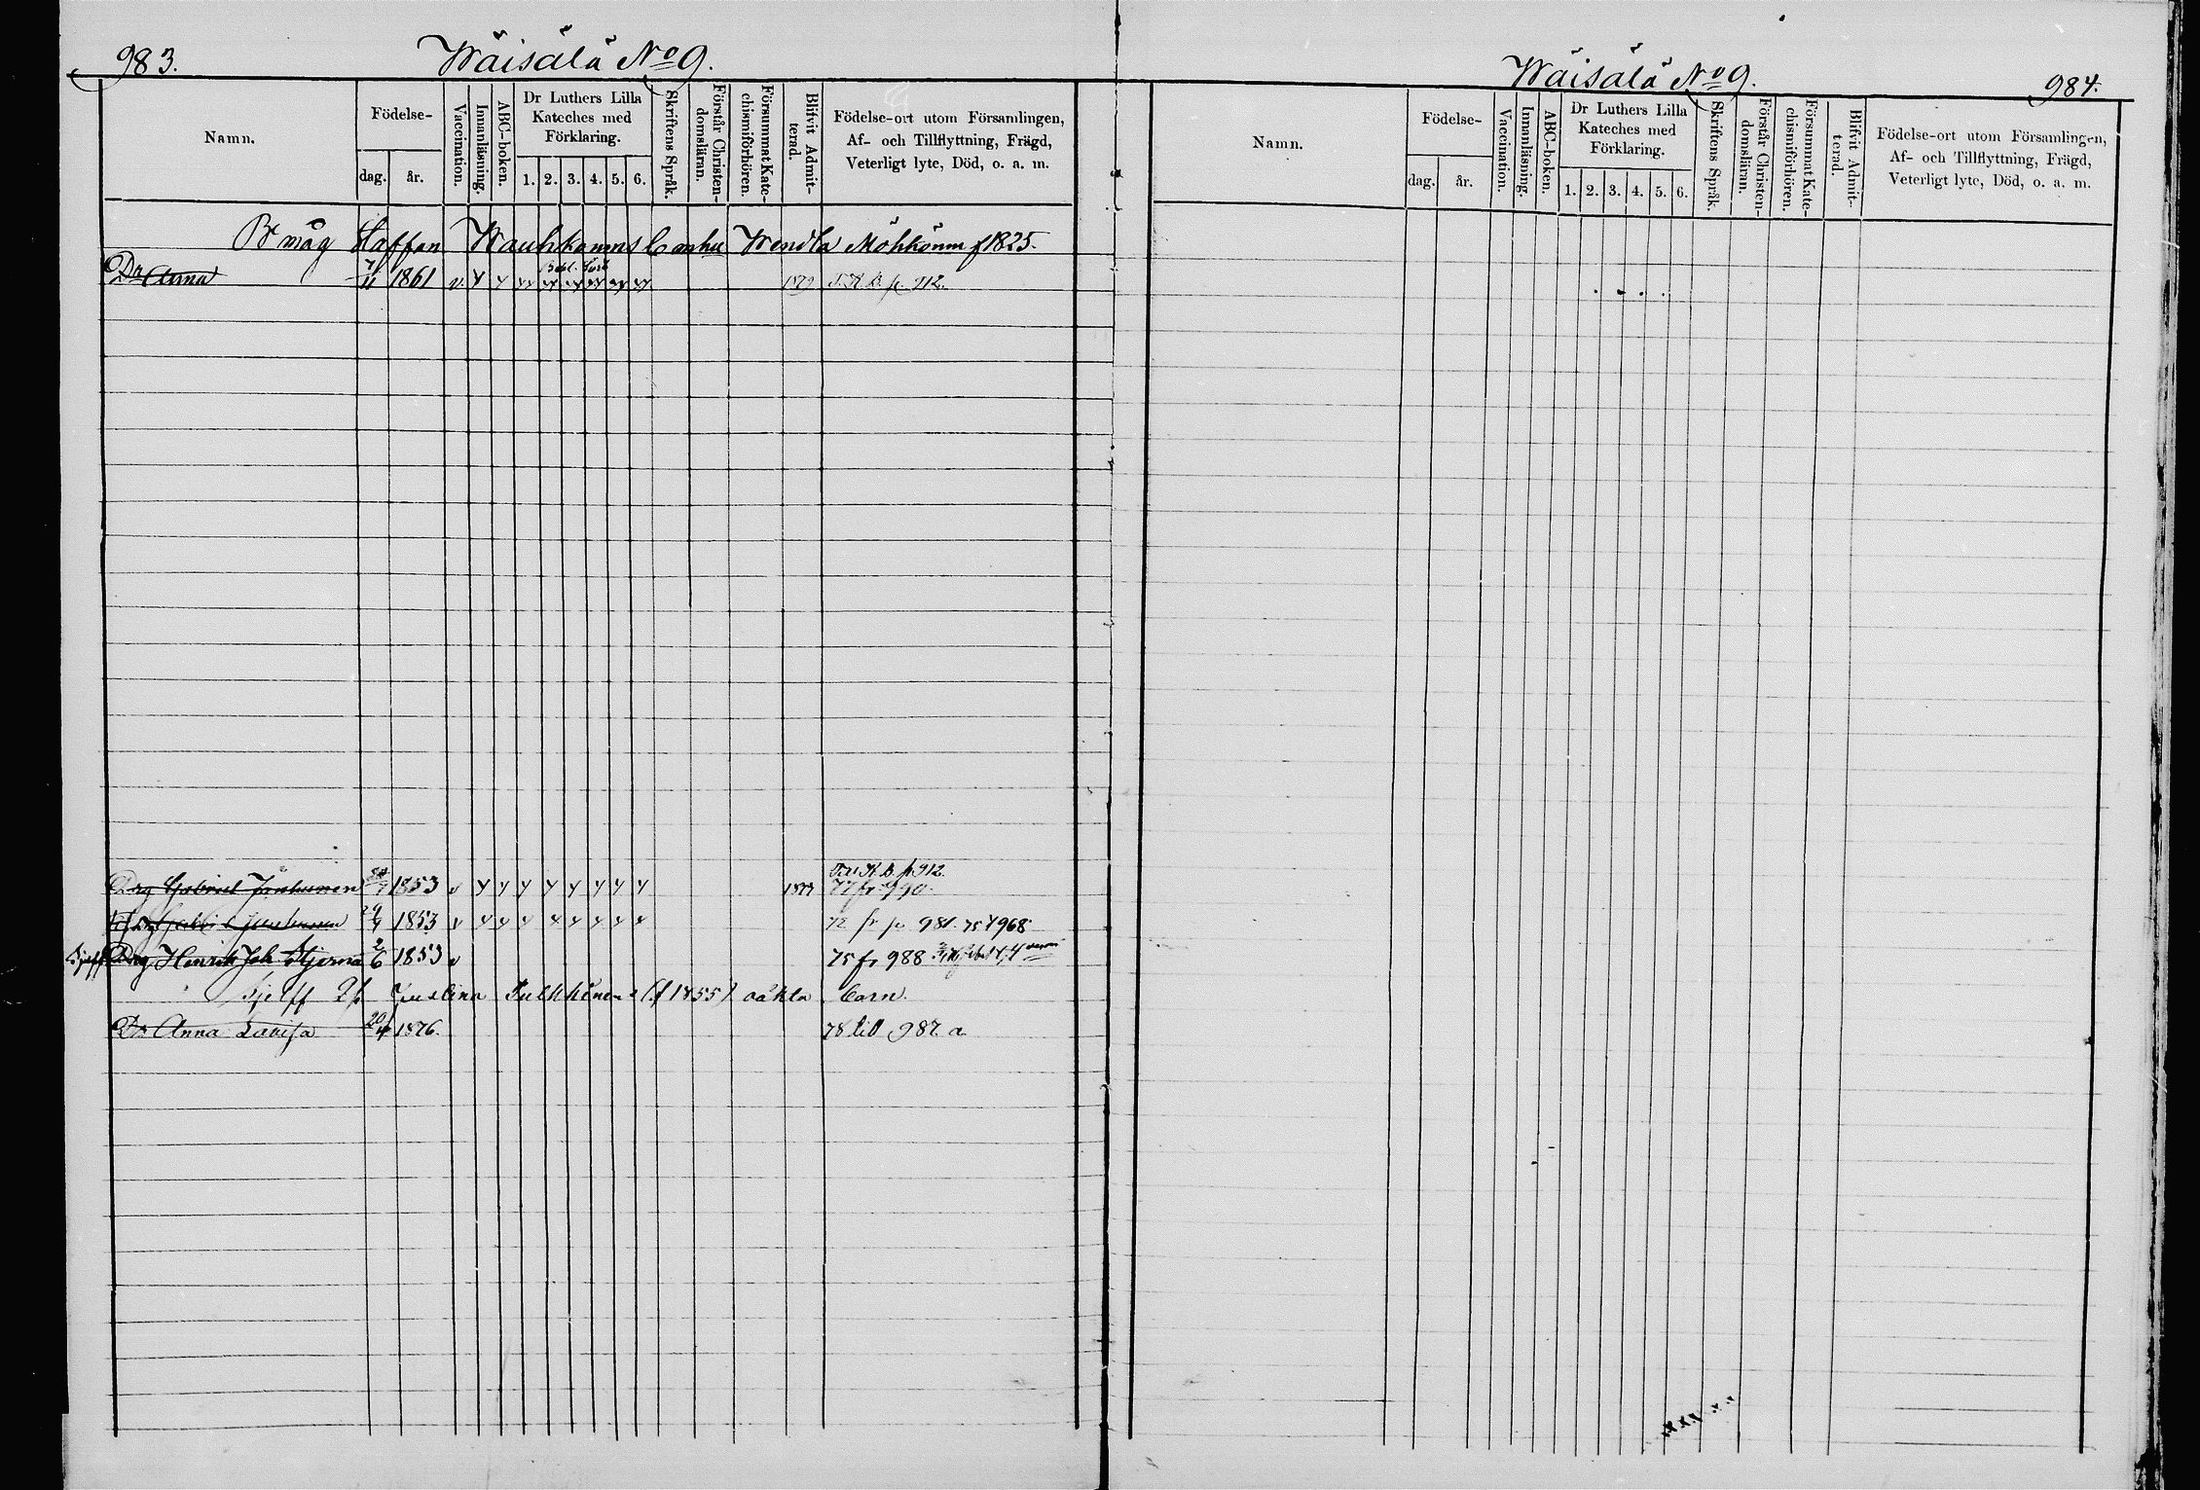 983.
Wäisälä No 9.
Namn.
Födelse-
dag.
år.
Vaccination.
Innanläsning.
ABC-boken.
Dr Luthers Lilla
Kateches med
Förklaring.
1. 2. 3. 4. 5. 6.
Skriftens Språk.
Förstår Christen-
domsläran.
Försummat Kate-
chismiförhören.
Blifvit Admit-
terad.
Födelse-ort utom Församlingen,
Af- och Tillflyttning, Frägd,
Veterligt lyte, Död, o. a. m.
måg Staffan Wauhkonens Enka Wendla Möhkönen f 1825.
Dr Anna 7/11 1861 v. 1879 p. 912.
p 912.
Drg Gabriel Janhunen 1853 v 77 fr 990.
Janhunen 1853 v 72 fr p 981. 75 t 968
Drg Henrik Joh Stjerna 2/6 1853 v 75 fr 988
Sjelff (f 1855) oäkta barn.
Dr Anna Lovisa 20/4 1876. 78 till 987 a
Wäisälä No 9.
984.
Namn.
Födelse-
dag.
år.
Vaccination.
Innanläsning.
ABC-boken.
Dr Luthers Lilla
Kateches med
Förklaring.
1. 2. 3. 4. 5. 6.
Skriftens Språk.
Förstår Christen-
domsläran.
Försummat Kate-
chismiförhören.
Blifvit Admit-
terad.
Födelse-ort utom Församlingen,
Af- och Tillflyttning, Frägd,
Veterligt lyte, Död, o. a. m.